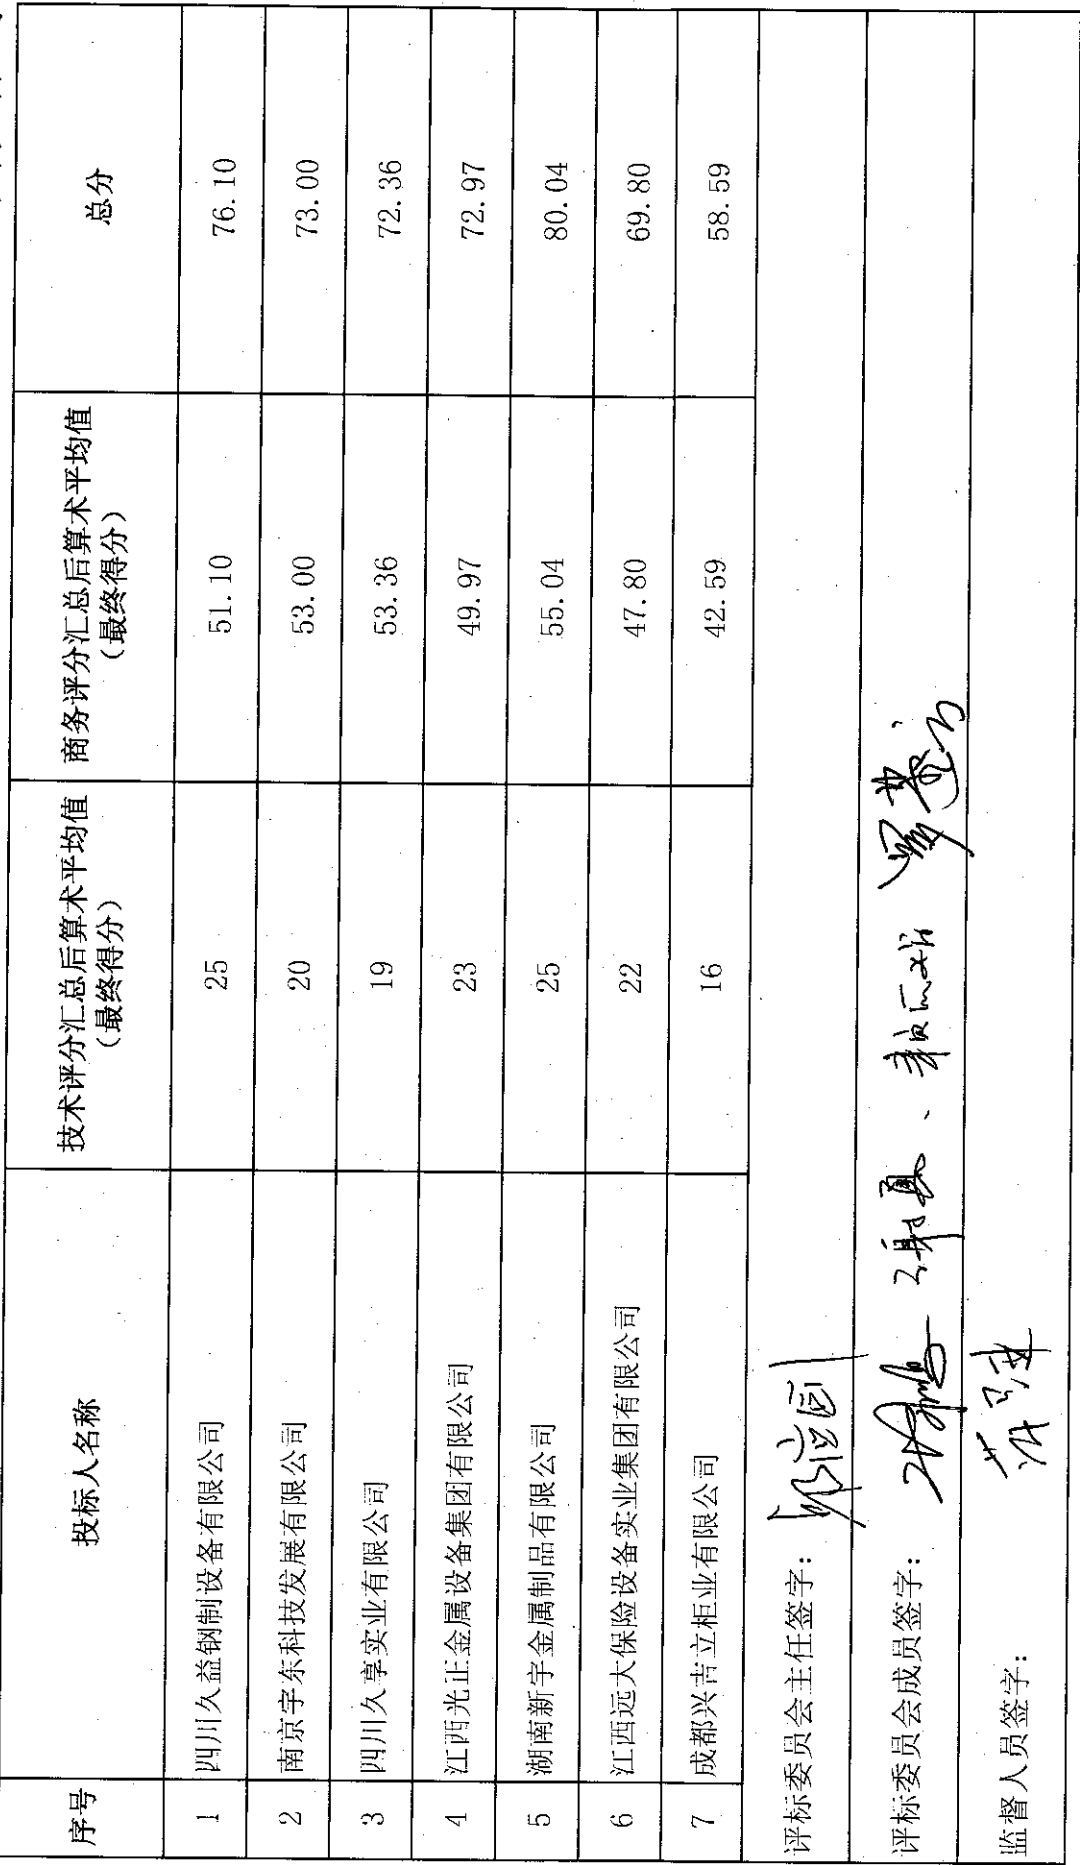 序号 投标人名称 技术评分汇总后算术平均值（最终得分） 商务评分汇总后算术平均值（最终得分） 总分
1 四川久益钢制设备有限公司 25 51.10 76.10
2 南京宇东科技发展有限公司 20 53.00 73.00
3 四川久享实业有限公司 19 53.36 72.36
4 江西光正金属设备集团有限公司 23 49.97 72.97
5 湖南新宇金属制品有限公司 25 55.04 80.04
6 江西远大保险设备实业集团有限公司 22 47.80 69.80
7 成都兴吉立柜业有限公司 16 42.59 58.59
评标委员会主任签字：
评标委员会成员签字：
监督人员签字：